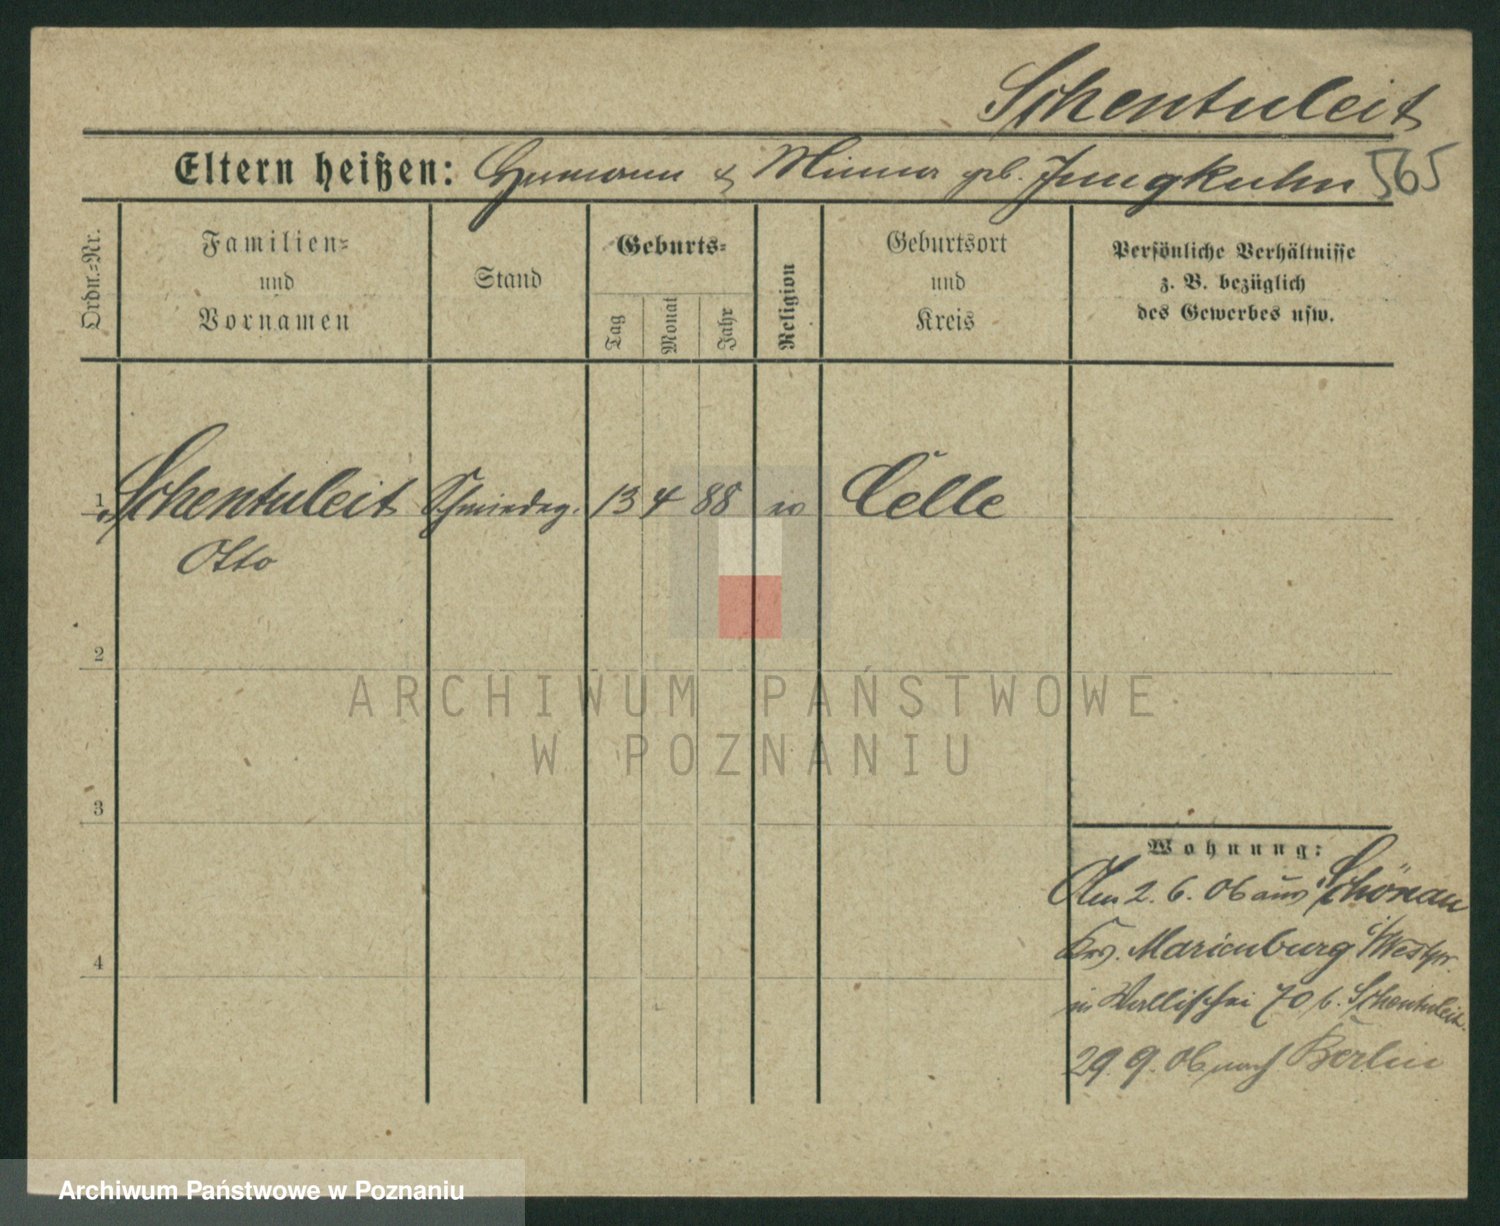 Schentuleit
Eltern heißen: Hermann & Minna geb. Jungkuhn 565
Ordn.-Nr.
Familien-
und
Vornamen
Stand
Geburts-
Tag
Monat
Jahr
Religion
Geburtsort
und
Kreis
Persönliche Verhältnisse
z. B. bezüglich
des Gewerbes usw.
1 Schentuleit Schmiedeg. 13 4 88 Celle
Otto
2
3
4
ARCHIWUM PAŃSTWOWE
W POZNANIU
Wohnung:
Am 2. 6. 06 aus Schönau
Krs. Marienburg i/Westpr.
in Wallischei 70 b. Schentuleit.
29. 9. 06 nach Berlin
Archiwum Państwowe w Poznaniu